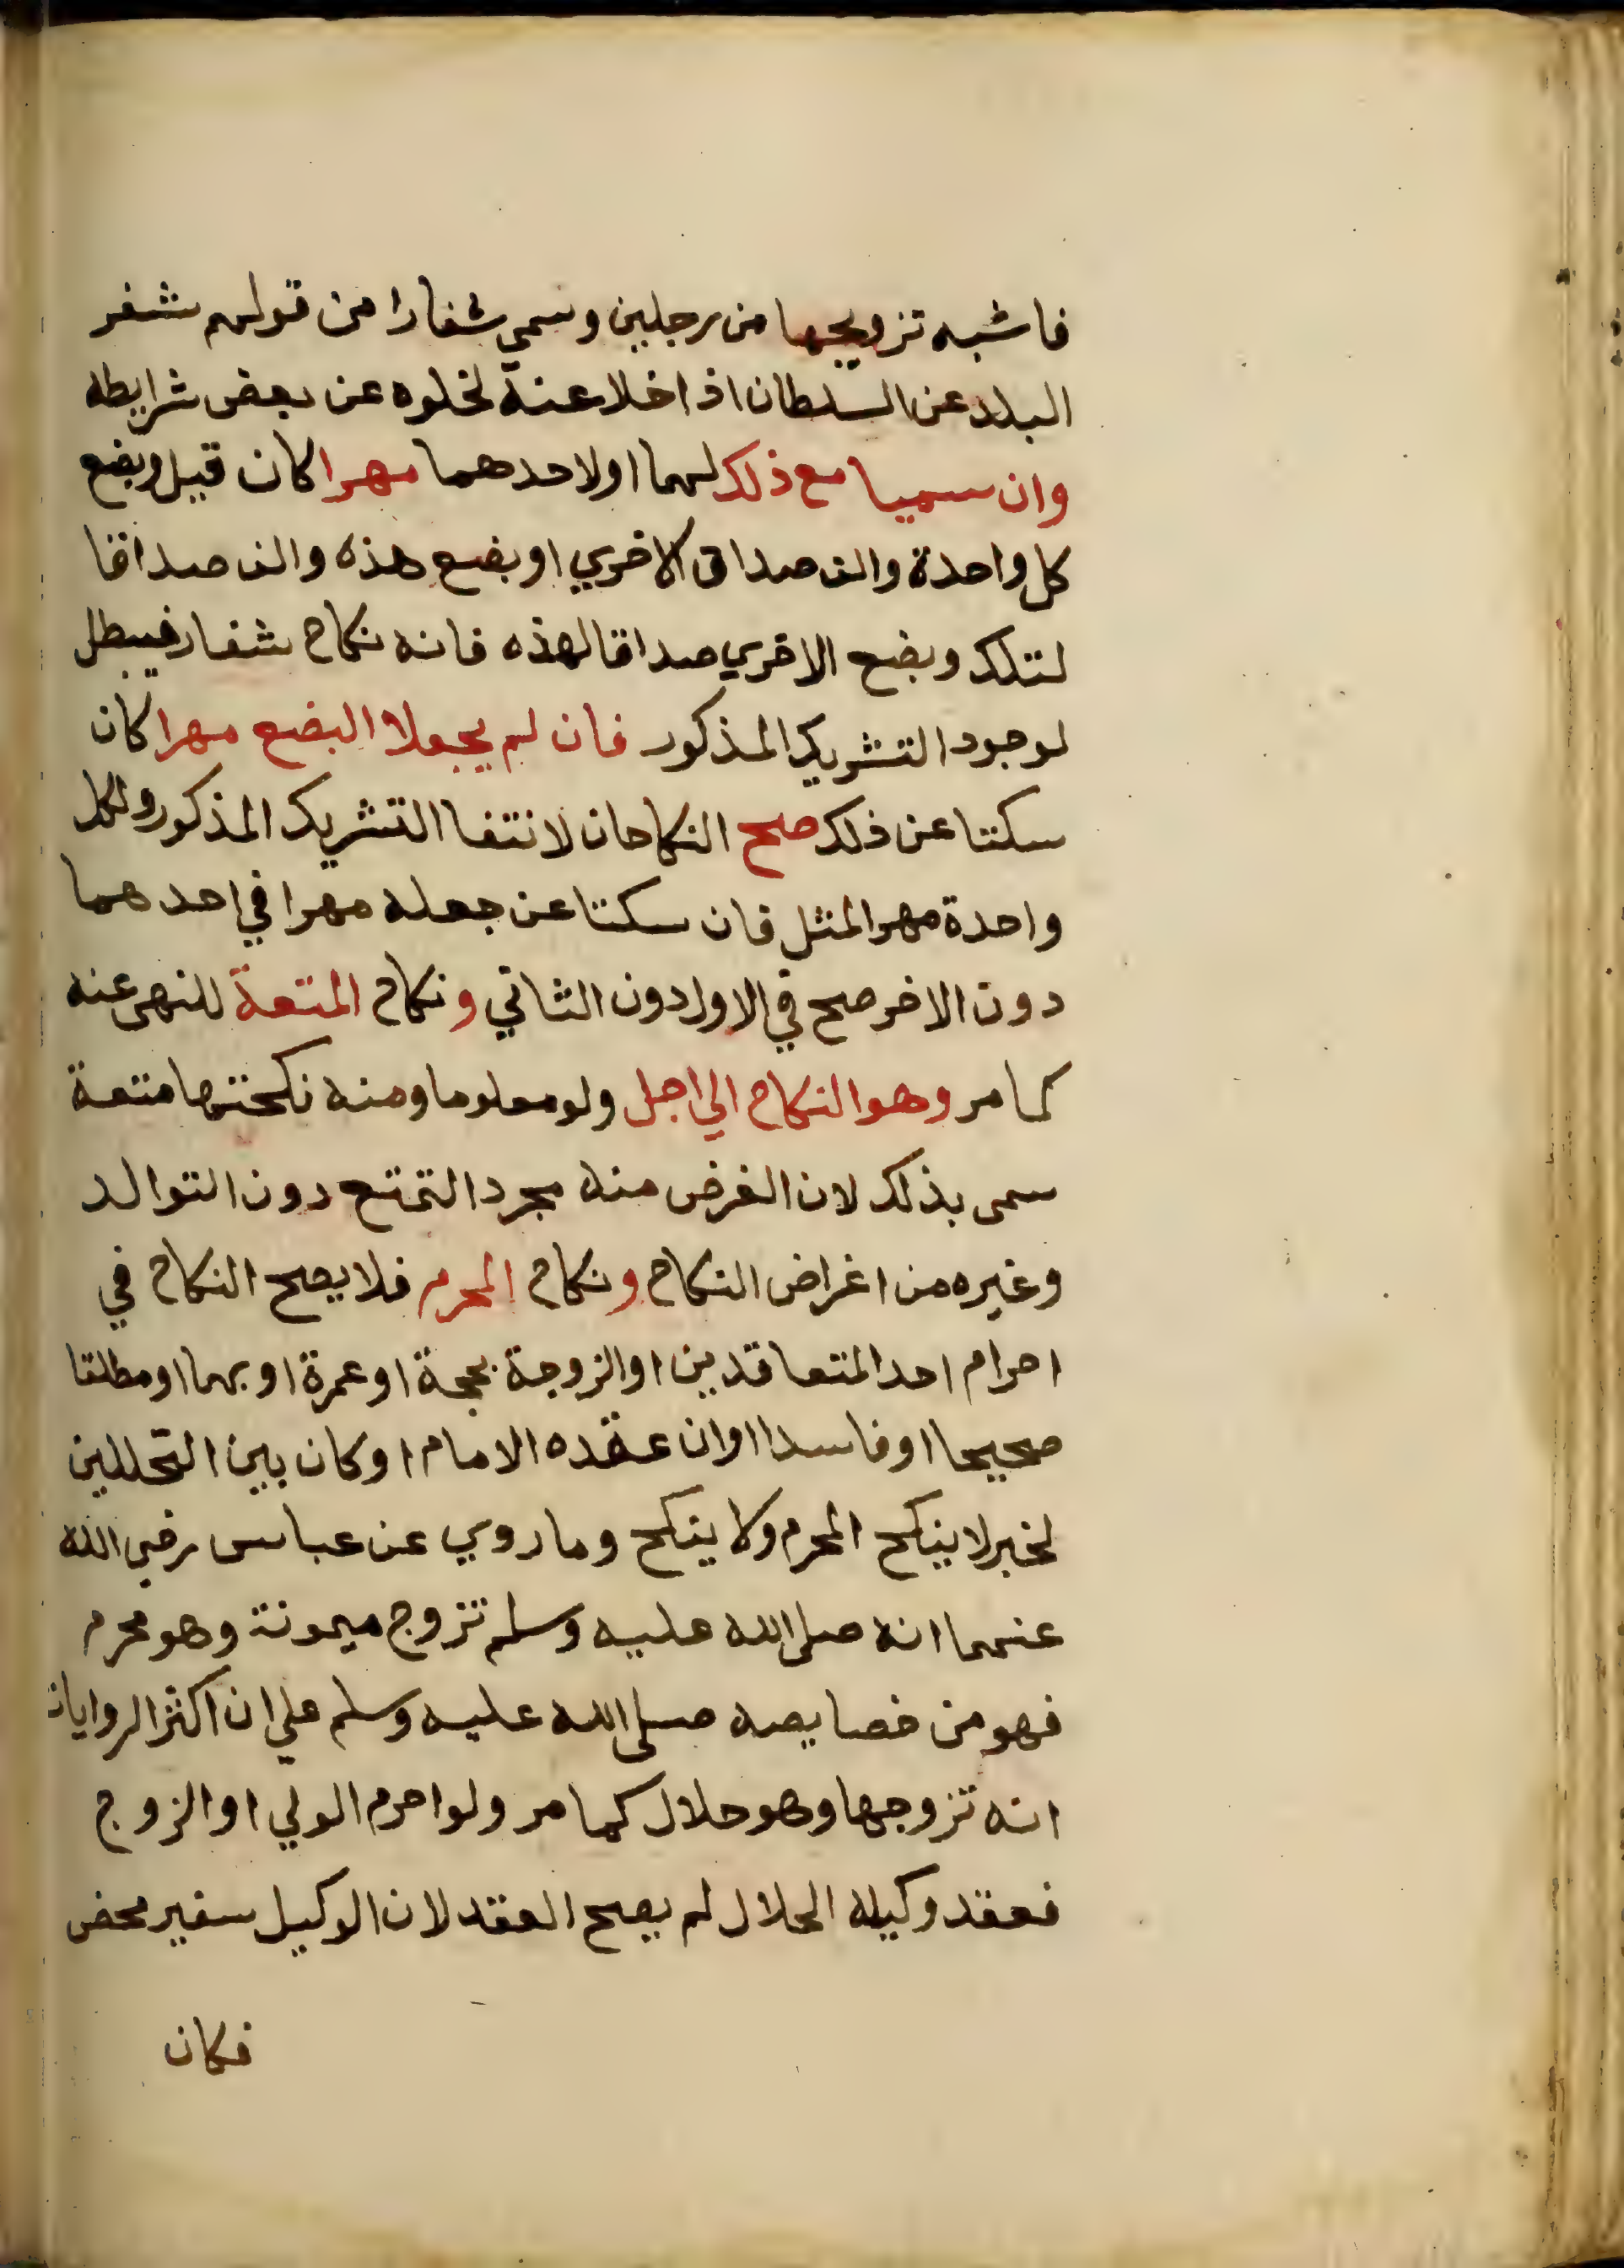 فاشبه تزويجها من رجلين وسمي شغارا من قولهم شغر
البلد عن السلطان اذا خلا عنه لخلوه عن بعض شرايطه
وان سميا مع ذلك لهما او لاحدهما مهرا كان قيل وبضع
كل واحدة والف صداق الاخري او بضع هذه والف صداقا
لتلك وبضع الاخري صداقا لهذه فانه نكاح شغار فيبطل
لوجود التشريك المذكور فان لم يجعلا البضع مهرا كان
سكتا عن ذلك صح النكاحان لانتفا التشريك المذكور ولكل
واحدة مهر المثل فان سكتا عن جعله مهرا في احدهما
دون الاخر صح في الاول دون الثاني ونكاح المتعة للنهي عنه
كما مر وهو النكاح الي اجل ولو معلوما ومنه نكحتها متعة
سمى بذلك لان الغرض منه مجرد التمتع دون التوالد
وغيره من اغراض النكاح ونكاح المحرم فلا يصح النكاح في
احرام احد المتعاقدين او الزوجة بحجة او عمرة او بهما او مطلقا
صحيحا او فاسدا اوان عقده الامام او كان بين التحللين
لخبر لا ينكح المحرم ولا ينكح وما روي عن عباس رضي الله
عنهما انه صلى الله عليه وسلم تزوج ميمونة وهو محرم
فهو من خصايصه صلى الله عليه وسلم علي ان اكثر الروايات
انه تزوجها وهو حلال كما مر ولو احرم الولي او الزوج
فعقد وكيله الحلال لم يصح العقد لان الوكيل سفير محض
فكان